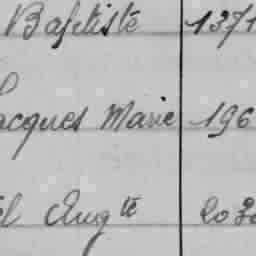 Baptiste 1371
Jacques Marie 196
Augte 203